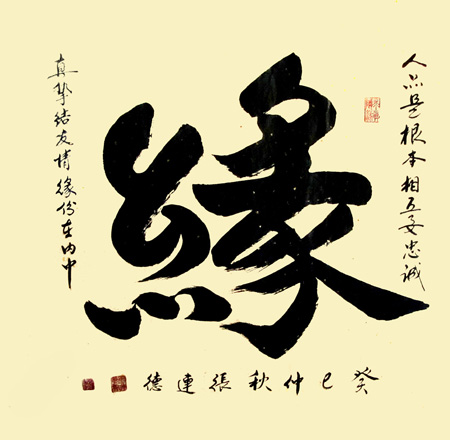 緣
人品是根本相互要忠诚
真挚结友情缘份在内中
癸巳仲秋張連德